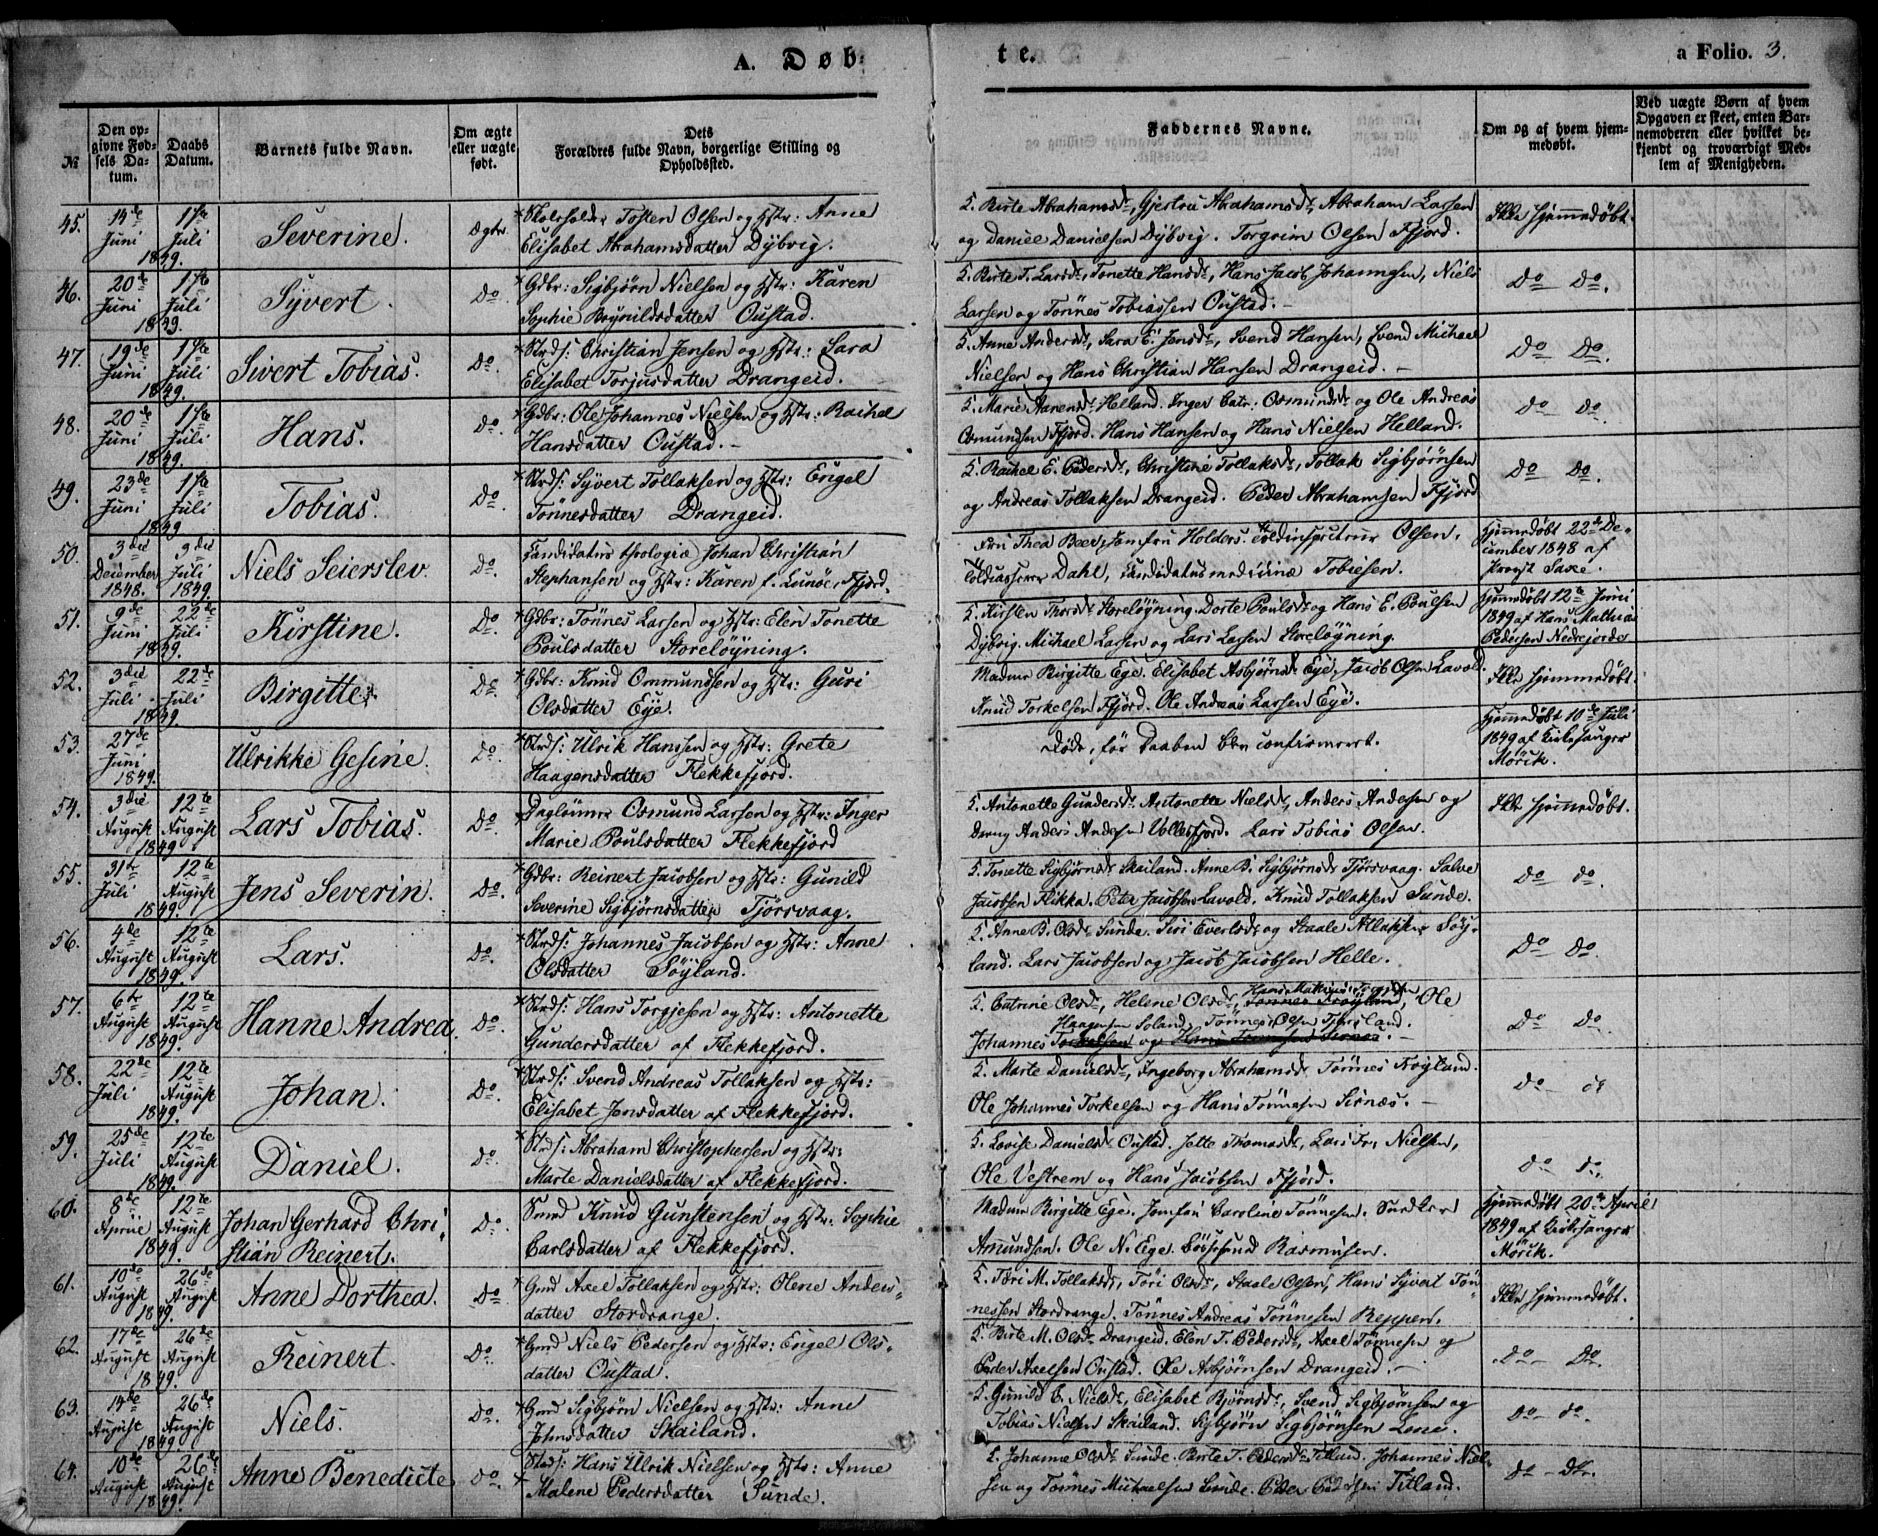 A. Døb
te.
a Folio. 3.
№
Den op-
givne Fød-
sels Da-
tum.
Daabs
Datum.
Barnets fulde Navn.
Om ægte
eller uægte
født.
Dets
Forældres fulde Navn, borgerlige Stilling og
Opholdssted.
Faddernes Navne.
Om og af hvem hjem-
medøbt.
Ved uægte Børn af hvem
Opgaven er skeet, enten Bar-
nemoderen eller hvilket be-
kjendt og troværdigt Med-
lem af Menigheden.
45. 14de Juni 1849. 1ste Juli Severine. Ægte. Skoleholder Tosten Olsen og Hstr: Anne
Elisabet Abrahamsdatter Dybvig.
5. Birte Abrahamsdr, Gjertru Abrahamsdr, Abraham Larsen
og Daniel Danielsen Dybvig. Torgrim Olsen Fjord.
Ikke hjemmedøbt.
46. 20de Juni 1849. 1ste Juli Syvert. Do. Gdbr: Sigbjørn Nielsen og Hstr: Karen
Sophie Reynildsdatter Oustad.
5. Birte T. Larsdr, Tonette Hansdr, Hans Jacob Johannesen, Niels
Larsen og Tønnes Tobiassen Oustad.
Do Do.
47. 19de Juni 1849. 1ste Juli Sivert Tobias. Do. Strds: Christian Jensen og Hstr: Sara
Elisabet Torjusdatter Drangeid.
5. Anne Andersdr, Sara E. Jensdr, Svend Hansen, Svend Michael
Nielsen og Hans Christian Hansen Drangeid.
Do Do.
48. 20de Juni 1849. 1ste Juli Hans. Do. Gdbr: Ole Johannes Nielsen og Hstr: Rachel
Hansdatter Oustad.
5. Marie Aanensdr Helland. Inger Catr: Osmundsdr og Ole Andreas
Osmundsen Fjord. Hans Hansen og Hans Nielsen Helland.
Do Do.
49. 23de Juni 1849 1ste Juli Tobias. Do. Strds: Syvert Tollaksen og Hstr: Engel
Tønnesdatter Drangeid.
5. Rachel E. Pedersdr, Christine Tollaksdr, Tollak Sigbjørnsen
og Andreas Tollaksen Drangeid. Peder Abrahamsen Fjord
Do Do.
50. 3die Deiember 1848. 9die Juli 1849. Niels Seierslev. Do. Candidatus theologiæ Johan Christian
Stephansen og Hstr: Karen f. Lunøe, Fjord.
Fru Thea Beer, Jomfru Holders. Toldinspecteur Olsen.
Toldkasserer Dahl, Candidatus medicinæ Tobiesen.
Hjemmedøbt 22de De-
cember 1848 af
Provst Saxe.
51. 9de Juni 1849. 22de Juli Kirstine. Do. Gdbr: Tønnes Larsen og Hstr: Elen Tonette
Poulsdatter Storeløgning.
5. Kirsten Thorsdr Storeløgning. Dorte Poulsdr og Hans E. Poulsen
Dybvig. Michael Larsen og Lars Larsen Storeløgning.
Hjemmedøbt 12te Juni
1849 af Hans Mathias
Pedersen Nedrejorde
52. 3die Juli 1849. 22de Juli Birgitte. Do. Gdbr: Knud Ommundsen og Hstr: Guri
Olsdatter Eye.
Madme Birgitte Ege. Elisabet Asbjørnsdr Eye, Jacob Olsen Lavold.
Knud Torkelsen Fjord. Ole Andreas Larsen Eye.
Ikke hjemmedøbt.
53. 27de Juni 1849. Ulrikke Gesine. Do. Strds: Ulrik Hanssen og Hstr: Grete
Haagensdatter Flekkefjord.
Døde, før Daaben blev confirmeret.
Hjemmedøbt 10de Juli
1849 af Kirkesanger
Mörik.
54. 3die August 1849. 12te August Lars Tobias. Do. Daglønner Osmund Larsen og Hstr: Inger
Marie Poulsdatter Flekkefjord
5. Antonette Gundersdr. Antonette Nielsdr, Anders Andersen og
Dreng Anders Andersen Vollesfjord. Lars Tobias Olsen.
Ikke hjemmedøbt.
55. 31te Juli 1849. 12te August Jens Severin. Do. Gdbr: Reinert Jacobsen og Hstr: Gunild
Severine Sigbjørnsdatter Tjørsvaag.
5. Tonette Sigbjørnsdr Skailand. Anne B. Sigbjørnsdr Tjørsvaag. Salve
Jacobsen Flikka. Peter Jacobsen Lavold. Knud Tollaksen Sunde.
Do do.
56. 4de August 1849. 12te August Lars. Do. Strds: Johannes Jacobsen og Hstr: Anne
Olsdatter Søyland.
5. Anne B. Olsdr Sunde. Siri Evertsdr og Staale Atlaksen Søy-
land. Lars Jacobsen og Jacob Jacobsen Helle.
Do Do.
57. 6te August 1849. 12te August Hanne Andrea. Do. Strds: Hans Torgjesen og Hstr: Antonette
Gundersdatter af Flekkefjord.
5. Catrine Olsdr, Helene Olsdr, Hans Mathias Tønnes Frøyland, Ole
Haagensen Soland, Tønnes Olsen
Johannes Torkelsen og Hans Tønnesen Sirnæs.
Do Do.
58. 22de Juli 1849. 12te August Johan. Do. Strds: Svend Andreas Tollaksen og Hstr:
Elisabet Jensdatter af Flekkefjord.
5. Marte Danielsdr, Ingeborg Abrahamsdr. Tønnes Frøyland.
Ole Johannes Torkelsen og Hans Tønnesen Sirnæs.
Do do
59. 25de Juli 1849. 12te August Daniel. Do. Strds: Abraham Christophersen og Hstr:
Marte Danielsdatter af Flekkefjord.
5. Lovise Danielsdr Oustad. Jette Thomasdr, Lars Fr. Nielsen,
Ole Vestrem og Hans Jacobsen Fjord.
do do.
60. 8de April 1849. 12te August Johan Gerhard Chri-
stian Reinert. Do. Smed Knud Gunstensen og Hstr: Sophie
Carlsdatter af Flekkefjord.
Madme Birgitte Ege. Jomfru Caroline Tønnesen.
Amundsen. Ole N. Ege. Rasmussen.
Hjemmedøbt 20de April
1849 af Kirkesanger
Mörik.
61. 10de August 1849. 26de August Anne Dorthea. Do. Gmd Axel Tollaksen og Hstr: Olene Anders-
datter Stordrange.
5. Tøri M. Tollaksdr, Tøri Olsdr, Staale Olsen, Hans Syvert Tøn-
nessen Stordrange. Tønnes Andreas Tønnesen Reppen.
Ikke hjemmedøbt.
62. 17de August 1849. 26de August Reinert. Do. Gmd Niels Pedersen og Hstr: Engel Ols-
datter Oustad.
5. Birte M. Olsdr Drangeid. Elen T. Pedersdr, Axel Tønnesen og
Peder Axelsen Oustad. Ole Asbjørnsen Drangeid.
Do Do.
63. 14de August 1849. 26de August Niels. Do. Gmd Sigbjørn Nielsen og Hstr: Anne
Johnsdatter Skailand.
5. Gunild E. Nielsdr, Elisabet Bjørnsdr, Svend Sigbjørnsen og
Tobias Nielsen Skailand. Sigbjørn Sigbjørnsen Lene.
Do do.
64. 10de August 1849. 26de August Anne Benedicte Do. Strds: Hans Ulrik Nielsen og Hstr: Anne
Malene Pedersdatter Sunde.
5. Johanne Olsdr Sunde. Birte T. Pedersdr Titland. Johannes Niel-
sen og Tønnes Michaelsen Sunde. Peder Pedersen Titland.
Do Do.